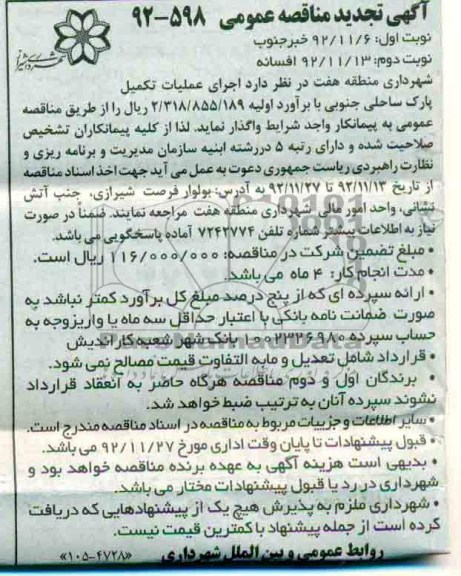 آگهی تجدید مناقصه عمومی ۵۹۸-۹۲
نوبت اول: ۹۲/۱۱/۶ خبرجنوب
نوبت دوم: ۹۲/۱۱/۱۳ افسانه
شهرداری منطقه هفت در نظر دارد اجرای عملیات تکمیل
پارک ساحلی جنوبی با برآورد اولیه ۲/۳۱۸/۸۵۵/۱۸۹ ریال را از طریق مناقصه
عمومی به پیمانکار واجد شرایط واگذار نماید. لذا از کلیه پیمانکاران تشخیص
صلاحیت شده و دارای رتبه ۵ دررشته ابنیه سازمان مدیریت و برنامه ریزی و
نظارت راهبردی ریاست جمهوری دعوت به عمل می آید جهت اخذ اسناد مناقصه
از تاریخ ۹۲/۱۱/۱۳ تا ۹۲/۱۱/۲۷ به آدرس: بولوار فرصت شیرازی، جنب آتش
نشانی، واحد امور مالی شهرداری منطقه هفت مراجعه نمایند. ضمناً در صورت
نیاز به اطلاعات بیشتر شماره تلفن ۷۲۴۲۷۷۴ آماده پاسخگویی می باشد.
• مبلغ تضمین شرکت در مناقصه: ۱۱۶/۰۰۰/۰۰۰ ریال است.
• مدت انجام کار: ۴ ماه می باشد.
• ارائه سپرده ای که از پنج درصد مبلغ کل برآورد کمتر نباشد به
صورت ضمانت نامه بانکی با اعتبار حداقل سه ماه یا واریز وجه به
حساب سپرده بانک شهر شعبه کاراندیش
• قرارداد شامل تعدیل و مابه التفاوت قیمت مصالح نمی شود.
• برندگان اول و دوم مناقصه هرگاه حاضر به انعقاد قرارداد
نشوند سپرده آنان به ترتیب ضبط خواهد شد.
• سایر اطلاعات و جزییات مربوط به مناقصه در اسناد مناقصه مندرج است.
• قبول پیشنهادات تا پایان وقت اداری مورخ ۹۲/۱۱/۲۷ می باشد.
• بدیهی است هزینه آگهی به عهده برنده مناقصه خواهد بود و
شهرداری در رد یا قبول پیشنهادات مختار می باشد.
• شهرداری ملزم به پذیرش هیچ یک از پیشنهادهایی که دریافت
کرده است از جمله پیشنهاد با کمترین قیمت نیست.
روابط عمومی و بین الملل شهرداری «۱۰۵-۴۷۲۸»